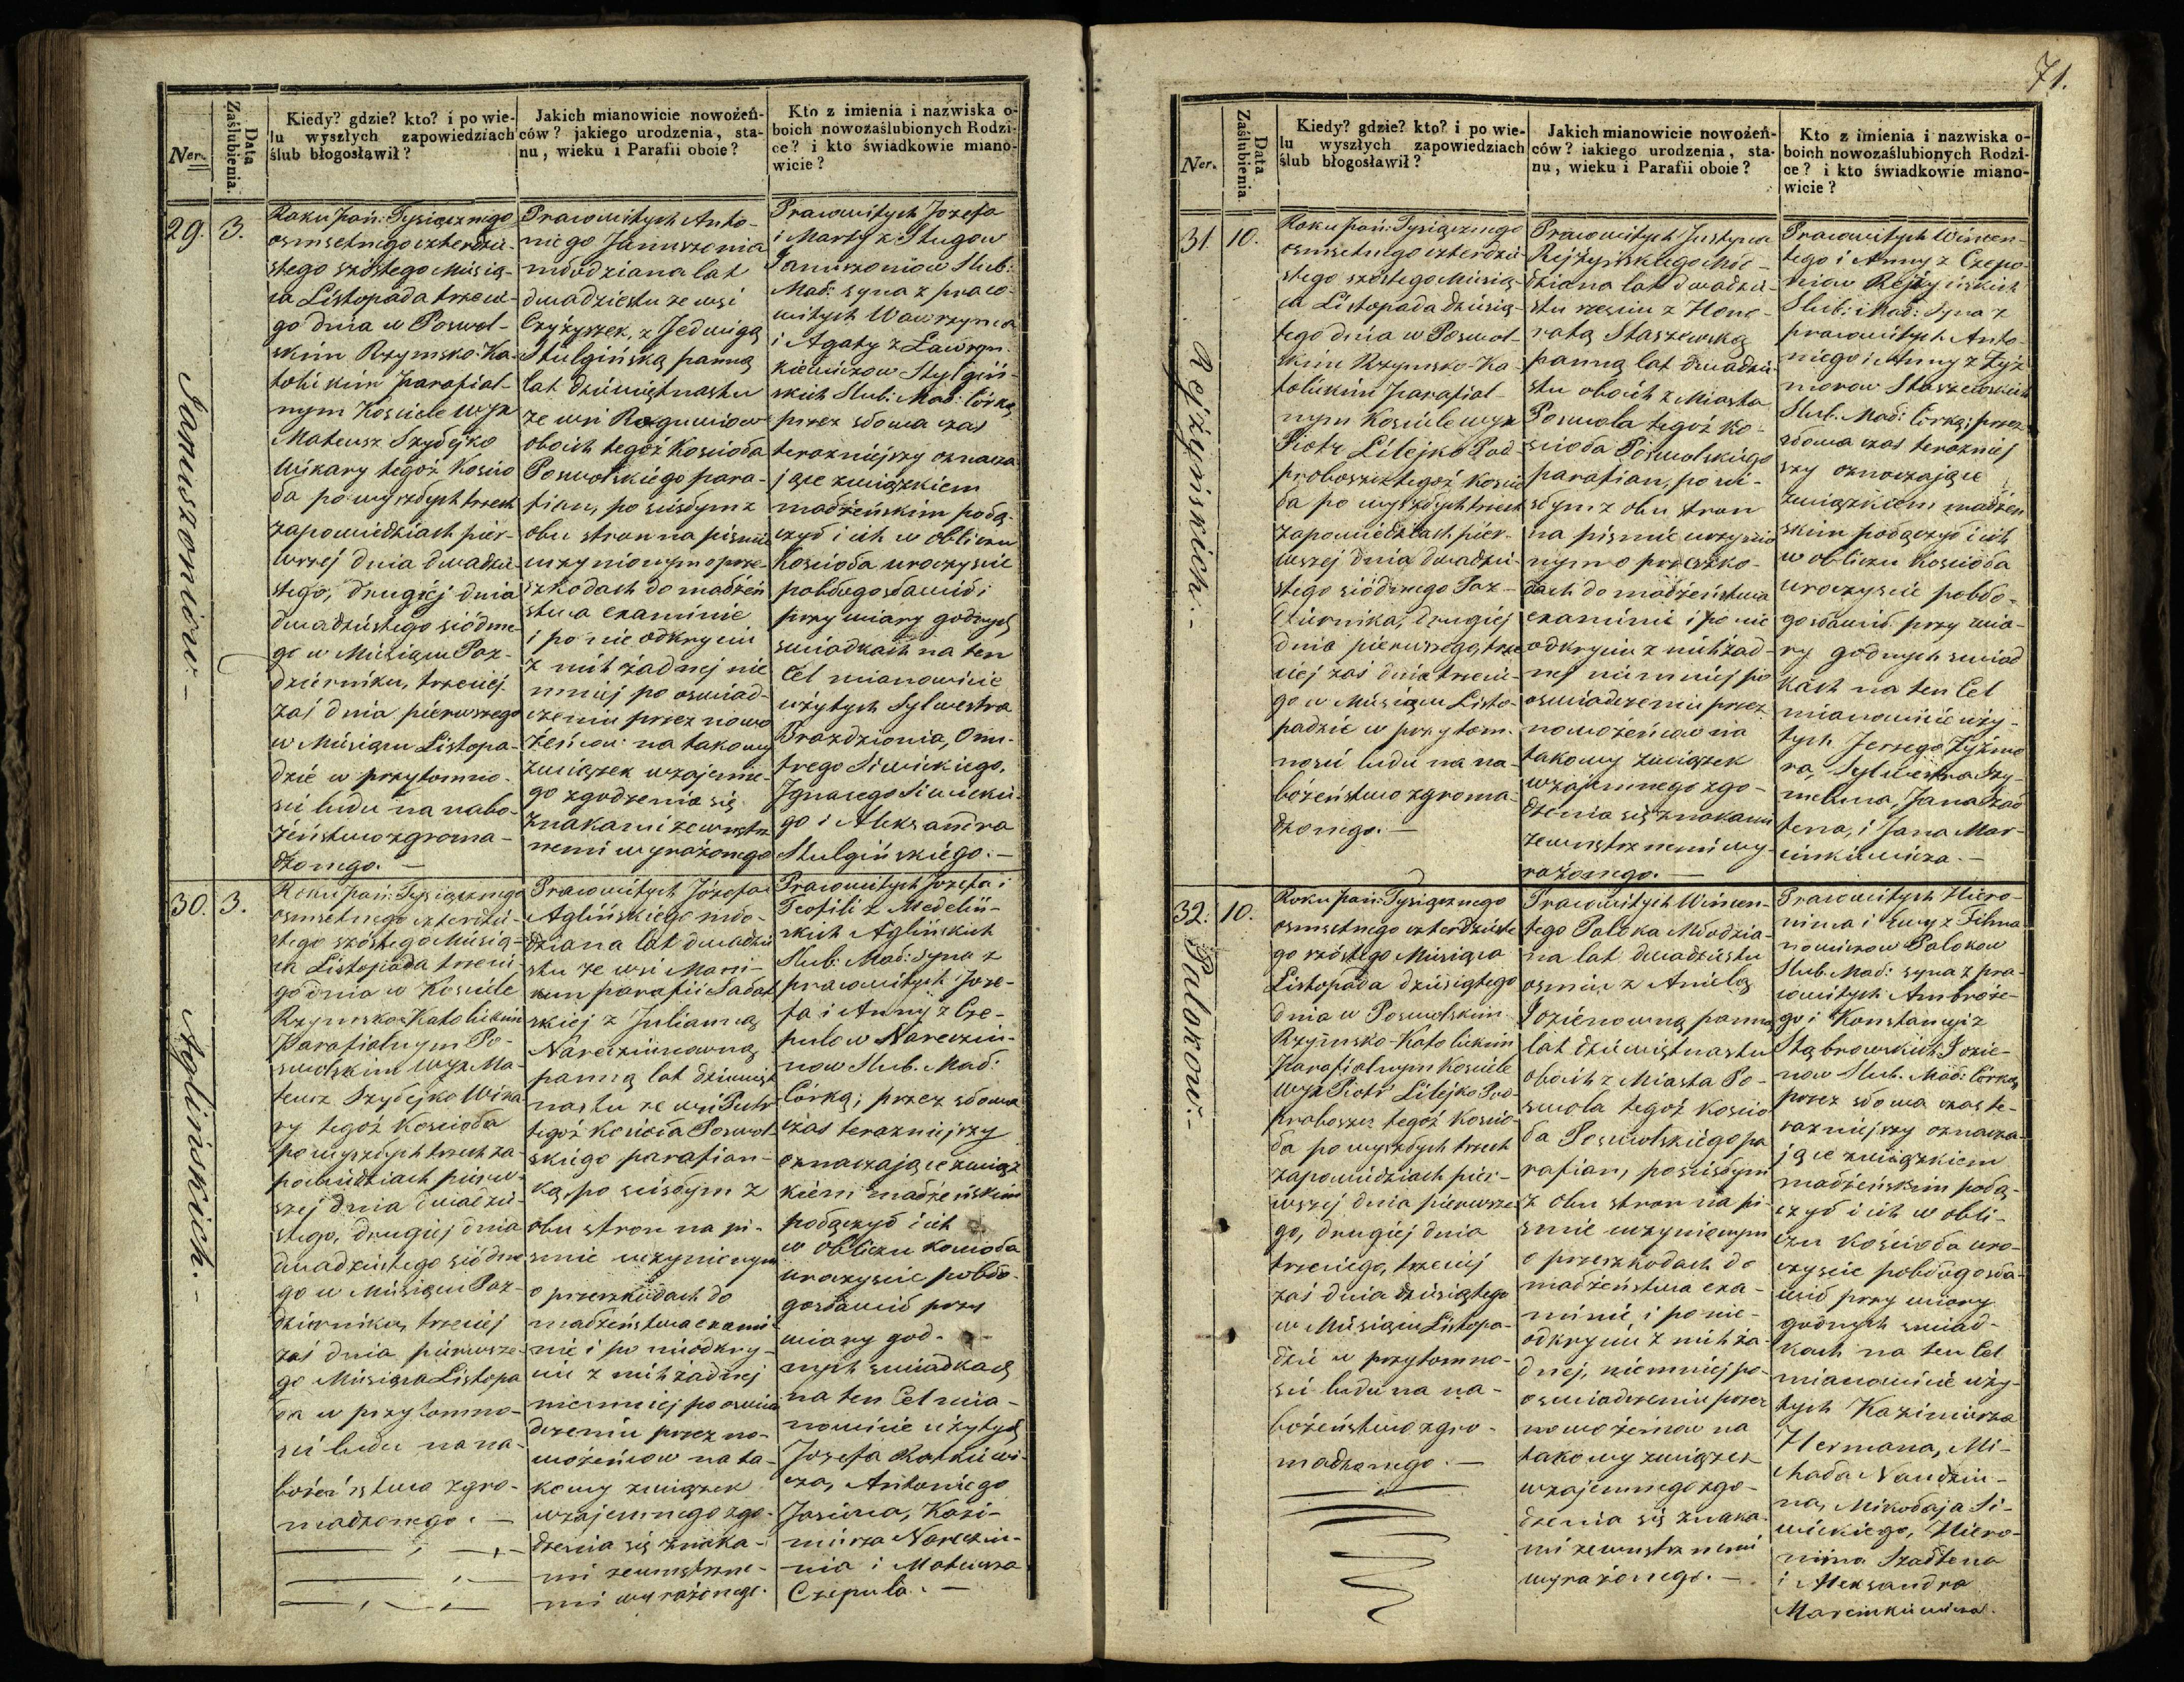 71.
Ner.
Data Zaślubienia.
Kiedy? gdzie? kto? i po wie-
lu wyszłych zapowiedziach
ślub błogosławił?
Jakich mianowicie nowożeń-
ców? jakiego urodzenia, sta-
nu, wieku i Parafii oboie?
Kto z imienia i nazwiska o-
boich nowozaślubionych Rodzi-
ce? i kto świadkowie miano-
wicie?
29.
3.
Januszoniow –
Roku Pań: Tysiącznego
osmsetnego czterdzie-
stego szóstego Miesią-
ca Listopada trzecie-
go dnia w Poswol-
skim Rzymsko-Ka-
tolickim Parafial-
nym Kościele WJX
Mateusz Szydejko
Wikary tegoż Kościo
ła po wyszłych trzech
zapowiedziach pier-
wszej dnia dwudzie-
stego, drugiej dnia
dwudziestego siódme
go w Miesiącu Paz-
dzierniku, trzeciej
zaś dnia pierwszego
w Miesiącu Listopa-
dzie w przytomno-
sci ludu na nabo-
żeństwo zgroma-
dzonego. —
Pracowitych Anto-
niego Januszonia
młodziana lat
dwadziestu ze wsi
Czyżyszek, z Jedwigą
Stulgińską panną
lat dziewiętnastu
ze wsi Rogowiow
oboich tegoż Kościoła
Poswolskiego para-
fian, po scisłym z
obu stron na pismie
uczynionym o prze-
szkodach do małżeń
stwa examinie
i po nie odkryciu
z nich żadnej nie
mniej po oswiad-
czeniu przez nowo
żeńcow na takowy
związek wzajemne-
go zgodzenia się
znakami zewnętrz
nemi wyrażonego
Pracowitych Jozefa
i Marty z Sługow
Januszoniow Slub:
Mał: syna z praco-
witych Wawrzynca
i Agaty z Ławryn-
kiewiczow Stulgiń-
skich Slub: Mał: Córkę
przez słowa czas
terazniejszy oznacza
jące związkiem
małżeńskim połą-
czył i ich w obliczu
Kościoła uroczyscie
pobłogosławił i
przy wiary godnych
swiadkach na ten
Cel mianowicie
użytych Sylwestra
Brazdzionia, Onu-
frego Siwickiego,
Ignacego Siwickie-
go i Aleksandra
Stulgińskiego. —
30.
3.
Aglińskich. –
Roku Pań: Tysiącznego
osmsetnego czterdzie-
stego szóstego Miesią-
ca Listopada trzecie-
go dnia w Kosciele
Rzymsko-Katolickim
Parafialnym Po-
swolskim WJX Ma-
teusz Szydejko Wika
ry tegoż Kościoła
po wyszłych trzech za-
powiedziach pierw-
szej dnia dwudzie-
stego, drugiej dnia
dwudziestego siódme
go w Miesiącu Paz-
dzierniku, trzeciej
zaś dnia pierwsze-
go Miesiąca Listopa
da w przytomno-
sci ludu na na-
bożeństwo zgro-
madzonego. —
Pracowitych Józefa
Aglińskiego mło-
dziana lat dwudzie
stu ze wsi Mari-
kun parafii Sałat
skiej z Julianną
Nareziunowną
panną lat dziewięt
nastu ze wsi Putr
tegoż Kościoła Poswol-
skiego parafian-
ką, po scisłym z
obu stron na pi-
smie uczynionym
o przeszkodach do
małżeństwa exami
nie i po nieodkry-
ciu z nich żadnej
niemniej po oswiad
czeniu przez no-
wożeńcow na ta-
kowy związek
wzajemnego zgo-
dzenia się znaka-
mi zewnętrzne-
mi wyrażonego.
Pracowitych Jozefa i
Teofili z Medeliń-
skich Aglińskich
Slub: Mał: syna z
pracowitych Joze-
fa i Anny z Cze-
pulow Nareziu-
now Slub. Mał:
Córką; przez słowa
czas terazniejszy
oznaczające związ
kiem małżeńskim
połączył i ich
w obliczu Koscioła
uroczyscie pobło-
gosławił przy
wiary god-
nych swiadkach
na ten Cel mia-
nowicie użytych
Jozefa Ratkiewi-
cza, Antoniego
Jasiuna, Kazi-
mierza Nareziu-
nia i Mateusza
Czepula. —
Ner.
Data Zaślubienia
Kiedy? gdzie? kto? i po wie-
lu wyszłych zapowiedziach
ślub błogosławił?
Jakich mianowicie nowożeń-
ców? iakiego urodzenia, sta-
nu, wieku i Parafii oboie?
Kto z imienia i nazwiska o-
boich nowozaślubionych Rodzi-
ce? i kto świadkowie miano-
wicie?
31.
10.
Rejżyńskich. –
Roku Pań: Tysiącznego
osmsetnego czterdzie
stego szóstego Miesią-
ca Listopada dziesią-
tego dnia w Poswol-
skim Rzymsko-Ka-
tolickim Parafial-
nym Kosciele WJX
Piotr Litejko Pod-
proboszcz tegoż Koscio
ła po wyszłych trzech
zapowiedziach pier-
wszej dnia dwudzie-
stego siódmego Paz-
dziernika, drugiej
dnia pierwszego, trze
ciej zaś dnia trzecie-
go w Miesiącu Listo-
padzie w przytom-
nosci ludu na na-
bożeństwo zgroma-
dzonego. —
Pracowitych Justyna
Rejżyńskiego Mło-
dziana lat dwudzie-
stu szesciu z Hono-
ratą Staszewską
panną lat dwudzie
stu oboich z Miasta
Poswola tegoż Ko-
scioła Poswolskiego
parafian, po sci-
słym z obu stron
na pismie uczynio
nym o przeszko-
dach do małżeństwa
examinie i po nie
odkryciu z nich żad-
nej niemniej po
oswiadczeniu przez
nowożeńcow na
takowy związek
wzajemnego zgo-
dzenia się znakami
zewnętrznemi wy-
rażonego. —
Pracowitych Wincen-
tego i Anny z Czepo-
niow Rejżyńskich
Slub: Mał: Syna z
pracowitych Anto-
niego i Anny z Żyż
morow Staszewskich
Slub. Mał: Córką; przez
słowa czas terazniej
szy oznaczające
związkiem małżeń
skim połączył i ich
w obliczu Kosciola
uroczyscie pobło-
gosławił przy wia-
ry godnych swiad
kach na ten Cel
mianowicie uży-
tych Jerzego Żyżmo
ra, Sylwestra Szy-
melina, Jana Szał
tena, i Jana Mar-
cinkiewicza. —
32.
10.
Palokow. –
Roku Pań: Tysiącznego
osmsetnego czterdzieste
go szóstego Miesiąca
Listopada dziesiątego
dnia w Poswolskim
Rzymsko-Katolickim
Parafialnym Kosciele
WJX Piotr Litejko Pod-
proboszcz tegoż Koscio-
ła po wyszłych trzech
zapowiedziach pier-
wszej dnia pierwsze-
go, drugiej dnia
trzeciego, trzeciej
zaś dnia dziesiątego
w Miesiącu Listopa-
dzie w przytomno-
sci ludu na na-
bożeństwo zgro-
madzonego. —
Pracowitych Wincen-
tego Paloka Młodzia-
na lat dwudziestu
osmiu z Anielą
Jozienowną panną
lat dziewiętnastu
oboich z Miasta Po-
swola tegoż Koscio
ła Poswolskiego pa
rafian, po scisłym
z obu stron na pi-
smie uczynionym
o przeszkodach do
małżeństwa exa-
minie i po nie-
odkryciu z nich ża-
dnej, niemniej po-
oswiadczeniu przez
nowożeńcow na
takowy związek
wzajemnego zgo-
dzenia się znaka-
mi zewnętrznemi
wyrażonego. —
Pracowitych Hiero-
nima i Ewy z Filma
nowiczow Palokow
Slub. Mał: syna z pra-
cowitych Ambroże-
go i Konstancyi z
Stąbrowskich Jozie-
now Slub. Mał: Córką
przez słowa czas te-
razniejszy oznacza-
jące związkiem
małżeńskim połą-
czył i ich w obli-
czu Kościoła uro-
czyscie pobłogosła-
wił przy wiary
godnych swiad-
kach na ten Cel
mianowicie uży-
tych Kazimierza
Hermana, Mi-
chała Naudziu-
na, Mikołaja Si-
wickiego, Hiero-
nima Szałtena
i Aleksandra
Marcinkiewicza.